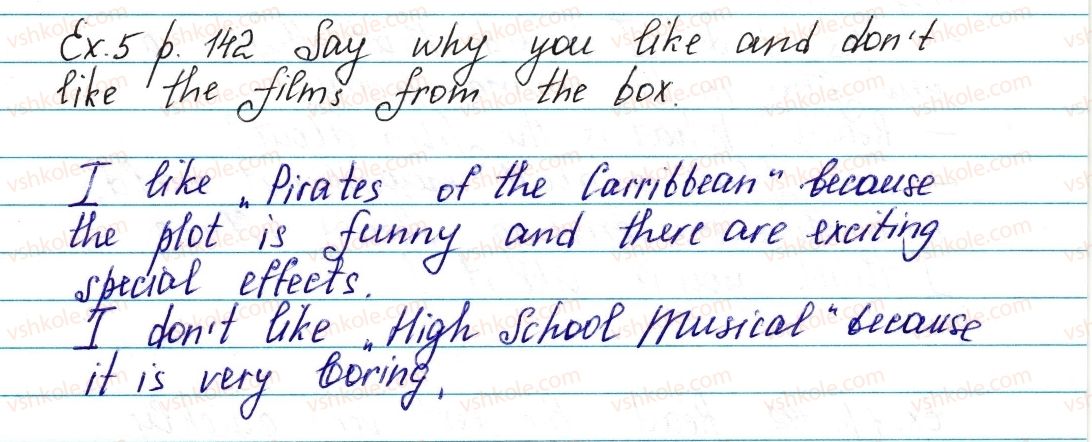 Ex.5 p. 142 Say why you like and don't
like the films from the box.
I like „Pirates of the Carribbean“ because
the plot is funny and there are exciting
special effects.
I don't like „High School Musical“ because
it is very boring.
vshkole.com